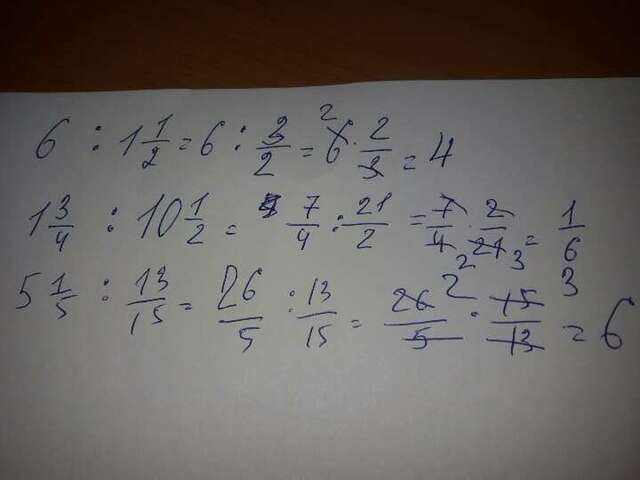 6 : 1 1/2 = 6 : 3/2 = 6 2 · 2/3 = 4
1 3/4 : 10 1/2 = 7/4 : 21/2 = 7/4 2 · 2/21 3 = 1/6
5 1/5 : 13/15 = 26/5 : 13/15 = 26 2/5 · 15 3/13 = 6